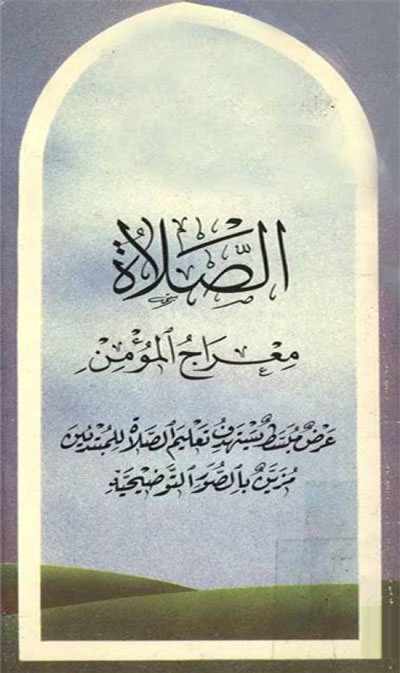 الصَّلَاةُ
مِعْرَاجُ الْمُؤْمِنِ
عَرْضٌ مُبَسَّطٌ يَسْتَهْدِفُ تَعْلِيمَ الصَّلَاةِ لِلْمُبْتَدِئِينَ
مُزَيَّنٌ بِالصُّوَرِ التَّوْضِيحِيَّةِ